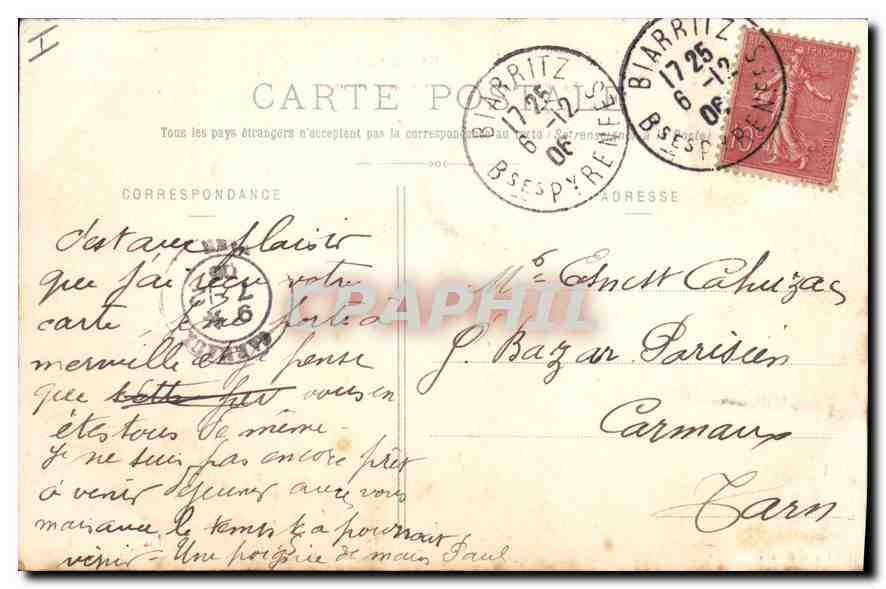 I
CARTE POSTALE
Tous les pays étrangers n'acceptent pas la correspondance au recto (Se renseigner à la Poste)
CORRESPONDANCE
ADRESSE
BIARRITZ
17 25
6 -12
06
Bses PYRENEES
BIARRITZ
17 25
6 -12
06
Bses PYRENEES
CPAPHIL
c'est avec plaisir
que j'ai reçu votre
carte, porte à
merveille et je pense
que vous en
êtes tous de même -
Je ne suis pas encore prêt
à venir déjeuner avec vous
mais avec le temps pourrait
venir - Une poignée de main Paul
Mr Ernest Cahuzac
G. Bazar Parisien
Carmaux
Tarn